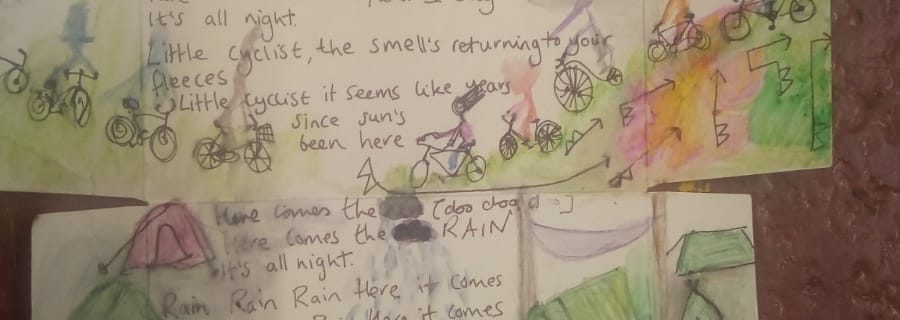 It's all night.
Little cyclist, the smell's returning to your
fleeces
Little cyclist it seems like years
since sun's
been here
B
B
B
B
Here comes the [doo doo doo]
Here comes the RAIN
It's all night.
Rain Rain Rain Here it comes
Here it comes